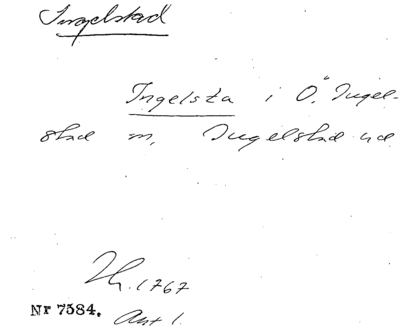 Ingelstad
Ingelsta i Ö. Ingel-
stad m, Ingelstad hd
Lh. 1767
Nr 7584. Akt 1.